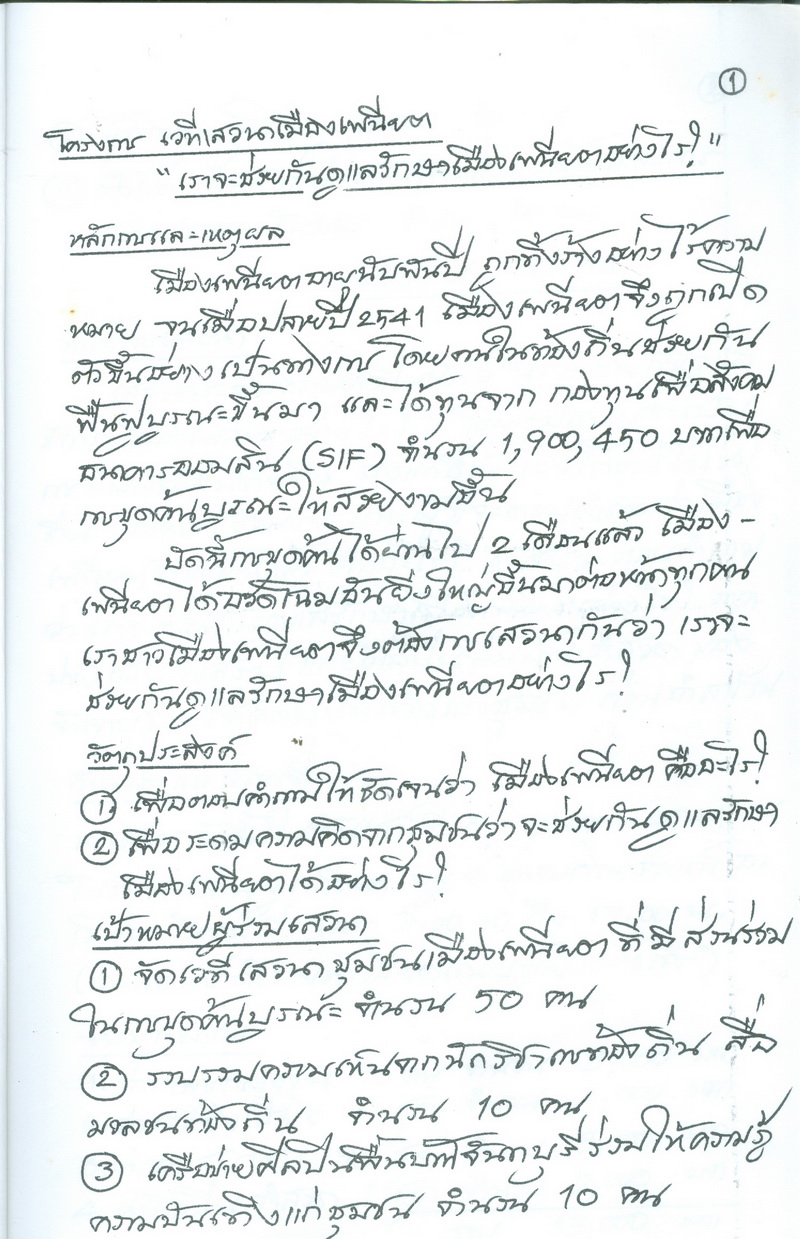 ①
โครงการ เวทีเสวนาเมืองเพนียต
"เราจะช่วยกันดูแลรักษาเมืองเพนียตอย่างไร?"
หลักการและเหตุผล
เมืองเพนียตอายุนับพันปี ถูกทิ้งร้างอย่างไร้ความ
หมาย จนเมื่อปลายปี 2541 เมืองเพนียตจึงถูกเปิด
ตัวขึ้นอย่างเป็นทางการ โดยคนในท้องถิ่นช่วยกัน
ฟื้นฟูบูรณะขึ้นมา และได้ทุนจาก กองทุนเพื่อสังคม
ธนาคารออมสิน (SIF) จำนวน 1,900,450 บาทเพื่อ
การขุดค้นบูรณะให้สวยงามขึ้น
บัดนี้การขุดค้นได้ผ่านไป 2 เดือนแล้ว เมือง-
เพนียตได้อวดโฉมอันยิ่งใหญ่ขึ้นมาต่อหน้าทุกคน
เราชาวเมืองเพนียตจึงต้องการเสวนากันว่า เราจะ
ช่วยกันดูแลรักษาเมืองเพนียตอย่างไร?
วัตถุประสงค์
① เพื่อตอบคำถามให้ชัดเจนว่า เมืองเพนียต คืออะไร?
② เพื่อระดมความคิดจากชุมชนว่าจะช่วยกันดูแลรักษา
เมืองเพนียตได้อย่างไร?
เป้าหมายผู้ร่วมเสวนา
① จัดเวทีเสวนาชุมชนเมืองเพนียต ที่มีส่วนร่วม
ในการขุดค้นบูรณะ จำนวน 50 คน
② รวบรวมความเห็นจากนักวิชาการท้องถิ่น สื่อ
มวลชนท้องถิ่น จำนวน 10 คน
③ เครือข่ายศิลปินพื้นบ้านจันทบุรี ร่วมให้ความรู้
ความบันเทิงแก่ชุมชน จำนวน 10 คน